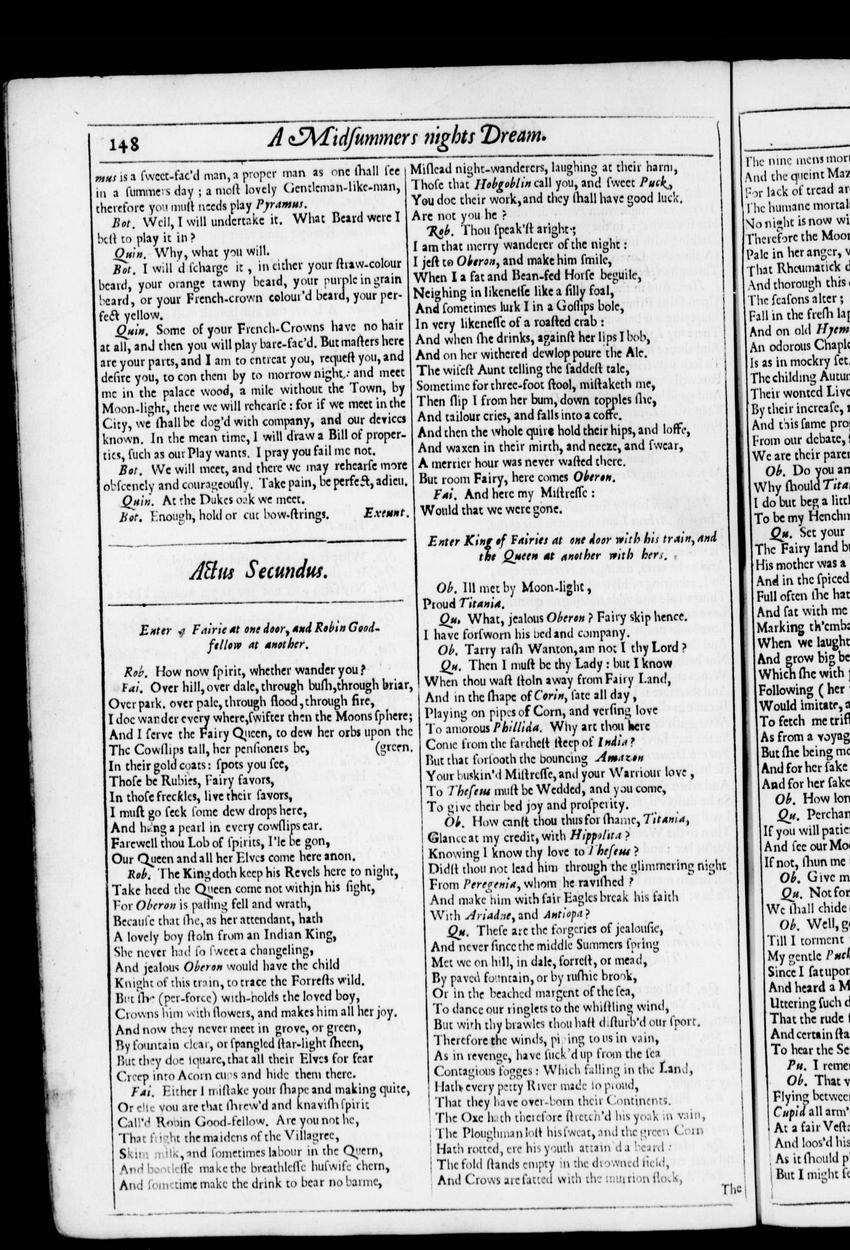 148
A Midſummers nights Dream.
mus is a ſweet-fac'd man, a proper man as one ſhall ſee
in a ſummers day ; a moſt lovely Gentleman-like-man,
therefore you muſt needs play Pyramus.
Bot. Well, I will undertake it. What Beard were I
beſt to play it in ?
Quin. Why, what you will.
Bot. I will d ſcharge it , in either your ſtraw-colour
beard, your orange tawny beard, your purple in grain
beard, or your French-crown colour'd beard, your per-
fect yellow.
Quin. Some of your French-Crowns have no hair
at all, and then you will play bare-fac'd. But maſters here
are your parts, and I am to entreat you, requeſt you, and
deſire you, to con them by to morrow night: and meet
me in the palace wood, a mile without the Town, by
Moon-light, there we will rehearſe : for if we meet in the
City, we ſhall be dog'd with company, and our devices
known. In the mean time, I will draw a Bill of proper-
ties, ſuch as our Play wants. I pray you fail me not.
Bot. We will meet, and there we may rehearſe more
obſcenely and courageouſly. Take pain, be perfect, adieu.
Quin. At the Dukes oak we meet.
Bot. Enough, hold or cut bow-ſtrings. Exeunt.
Actus Secundus.
Enter a Fairie at one door, and Robin Good-
fellow at another.
Rob. How now ſpirit, whether wander you ?
Fai. Over hill, over dale, through buſh, through briar,
Over park. over pale, through flood, through fire,
I doe wander every where, ſwifter then the Moons ſphere;
And I ſerve the Fairy Queen, to dew her orbs upon the
The Cowſlips tall, her penſioners be, (green.
In their gold coats: ſpots you ſee,
Thoſe be Rubies, Fairy favors,
In thoſe freckles, live their ſavors,
I muſt go ſeek ſome dew drops here,
And hang a pearl in every cowſlips ear.
Farewell thou Lob of ſpirits, I'le be gon,
Our Queen and all her Elves come here anon.
Rob. The King doth keep his Revels here to night,
Take heed the Queen come not within his ſight,
For Oberon is paſſing fell and wrath,
Becauſe that ſhe, as her attendant, hath
A lovely boy ſtoln from an Indian King,
She never had ſo ſweet a changeling,
And jealous Oberon would have the child
Knight of this train, to trace the Forreſts wild.
But ſhe (per-force) with-holds the loved boy,
Crowns him with flowers, and makes him all her joy.
And now they never meet in grove, or green,
By fountain clear, or ſpangled ſtar-light ſheen,
But they doe ſquare, that all their Elves for fear
Creep into Acorn cups and hide them there.
Fai. Either I miſtake your ſhape and making quite,
Or elſe you are that ſhrew'd and knaviſh ſpirit
Call'd Robin Good-fellow. Are you not he,
That fright the maidens of the Villagree,
Skim milk, and ſometimes labour in the Quern,
And bootleſſe make the breathleſſe huſwife chern,
And ſometime make the drink to bear no barme,
Miſlead night-wanderers, laughing at their harm,
Thoſe that Hobgoblin call you, and ſweet Puck,
You doe their work, and they ſhall have good luck.
Are not you he ?
Rob. Thou ſpeak'ſt aright;
I am that merry wanderer of the night :
I jeſt to Oberon, and make him ſmile,
When I a fat and Bean-fed Horſe beguile,
Neighing in likeneſſe like a ſilly foal,
And ſometimes lurk I in a Goſſips bole,
In very likeneſſe of a roaſted crab :
And when ſhe drinks, againſt her lips I bob,
And on her withered dewlop poure the Ale.
The wiſeſt Aunt telling the ſaddeſt tale,
Sometime for three-foot ſtool, miſtaketh me,
Then ſlip I from her bum, down topples ſhe,
And tailour cries, and falls into a coffe.
And then the whole quire hold their hips, and loffe,
And waxen in their mirth, and neeze, and ſwear,
A merrier hour was never waſted there.
But room Fairy, here comes Oberon.
Fai. And here my Miſtreſſe :
Would that we were gone.
Enter King of Fairies at one door with his train, and
the Queen at another with hers.
Ob. Ill met by Moon-light ,
Proud Titania.
Qu. What, jealous Oberon ? Fairy skip hence.
I have forſworn his bed and company.
Ob. Tarry raſh Wanton, am not I thy Lord ?
Qu. Then I muſt be thy Lady : but I know
When thou waſt ſtoln away from Fairy Land,
And in the ſhape of Corin, ſate all day ,
Playing on pipes of Corn, and verſing love
To amorous Phillida. Why art thou here
Come from the fartheſt ſteep of India ?
But that forſooth the bouncing Amazon
Your buskin'd Miſtreſſe, and your Warriour love ,
To Theſeus muſt be Wedded, and you come,
To give their bed joy and proſperity.
Ob. How canſt thou thus for ſhame, Titania,
Glance at my credit, with Hippolita ?
Knowing I know thy love to Theſeus ?
Didſt thou not lead him through the glimmering night
From Peregenia, whom he raviſhed ?
And make him with fair Eagles break his faith
With Ariadne, and Antiopa ?
Qu. Theſe are the forgeries of jealouſie,
And never ſince the middle Summers ſpring
Met we on hill, in dale, forreſt, or mead,
By paved fountain, or by ruſhie brook,
Or in the beached margent of the ſea,
To dance our ringlets to the whiſtling wind,
But with thy brawles thou haſt diſturb'd our ſport.
Therefore the winds, pi ing to us in vain,
As in revenge, have ſuck'd up from the ſea
Contagious fogges : Which falling in the Land,
Hath every petty River made ſo proud,
That they have over-born their Continents.
The Oxe hath therefore ſtretch'd his yoak in vain,
The Ploughman loſt his ſweat, and the green Corn
Hath rotted, ere his youth attain'd a beard :
The fold ſtands empty in the drowned field,
And Crows are fatted with the murrion flock,
The
The nine mens mor
And the queint Maz
For lack of tread ar
The humane mortal
No night is now wi
Therefore the Moon
Pale in her anger, w
That Rheumatick d
And thorough this
The ſeaſons alter ;
Fall in the freſh lap
And on old Hyem
An odorous Chaple
Is as in mockry ſet.
The childing Autu
Their wonted Live
By their increaſe,
And this ſame pro
From our debate,
We are their paren
Ob. Do you am
Why ſhould Tita
I do but beg a litt
To be my Henchm
Qu. Set your
The Fairy land b
His mother was a
And in the ſpiced
Full often ſhe hat
And ſat with me
Marking th'emba
When we laught
And grow big be
Which ſhe with
Following ( her
Would imitate, a
To fetch me trifl
As from a voyag
But ſhe being mo
And for her ſake
And for her ſake
Ob. How lon
Qu. Perchan
If you will patie
And ſee our Moo
If not, ſhun me
Ob. Give m
Qu. Not for
We ſhall chide
Ob. Well, g
Till I torment
My gentle Puck
Since I ſat upon
And heard a M
Uttering ſuch d
That the rude
And certain ſta
To hear the Se
Pu. I reme
Ob. That v
Flying betwee
Cupid all arm'
At a fair Veſt
And loos'd his
As it ſhould p
But I might ſe